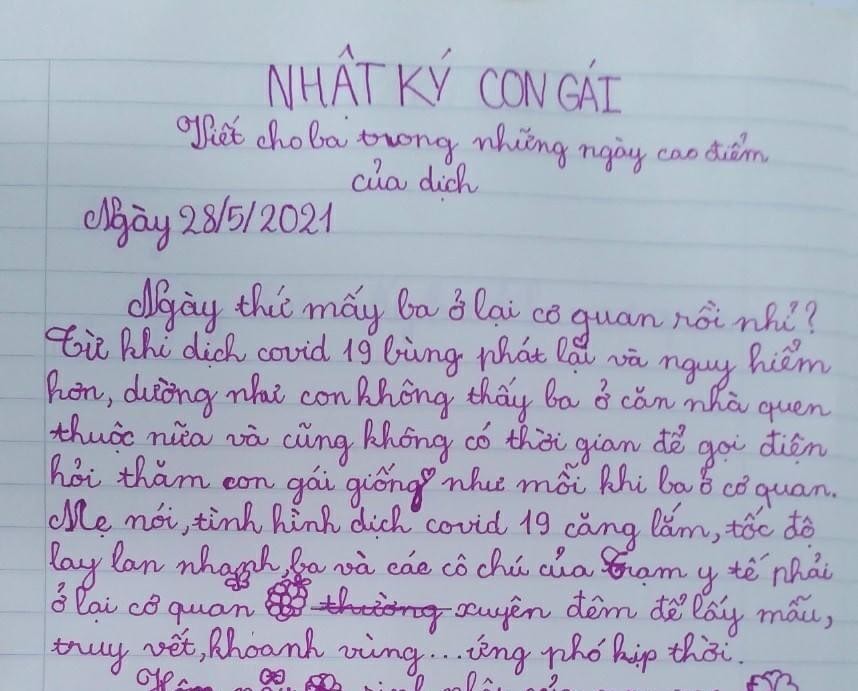 NHẬT KÝ CON GÁI
Viết cho ba trong những ngày cao điểm
của dịch
Ngày 28/5/2021
Ngày thứ mấy ba ở lại cơ quan rồi nhỉ?
Từ khi dịch covid 19 bùng phát lại và nguy hiểm
hơn, dường như con không thấy ba ở căn nhà quen
thuộc nữa và cũng không có thời gian để gọi điện
hỏi thăm con gái giống như mỗi khi ba ở cơ quan.
Mẹ nói, tình hình dịch covid 19 căng lắm, tốc độ
lây lan nhanh, ba và các cô chú của trạm y tế phải
ở lại cơ quan thường xuyên đêm để lấy mẫu,
truy vết, khoanh vùng... ứng phó kịp thời.